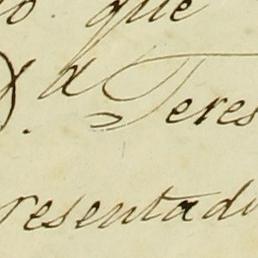 o que
D.ª Teres
resentad